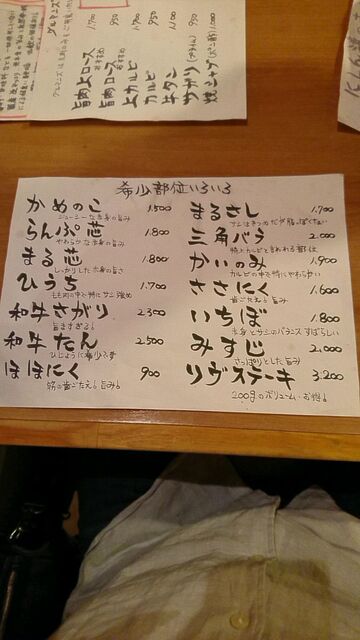 旨肉上ロース 1,700
おすすめ
旨肉ロース 950
おすすめ
上カルビ
カルビ 950
牛タン 1,100
サガリ
焼シャブ
希少部位いろいろ
かめのこ 1,500
ジューシーな赤身の旨み
らんぷ芯 1,800
やわらかな赤身の旨み
まる芯 1,800
しっかりした赤身の旨さ
ひうち 1,700
もも肉の中で特にサシ強め
和牛さがり 2300
旨すぎる!
和牛たん 2500
ひじょうに希少です
ほほにく 900
筋の歯ごたえ!旨み!
まるさし 1,700
サシはきつめだが脂っぽくない
三角バラ 2,000
特上カルビと言われる部位
かいのみ 1,900
カルビの中で特にやわらかい
ささにく 1,600
歯ごたえと旨み
いちぼ 1,800
赤身とサシのバランスすばらしい
みすじ 2,000
さっぱりとした旨み
リヴステーキ 3,200
200gのボリューム・お得!